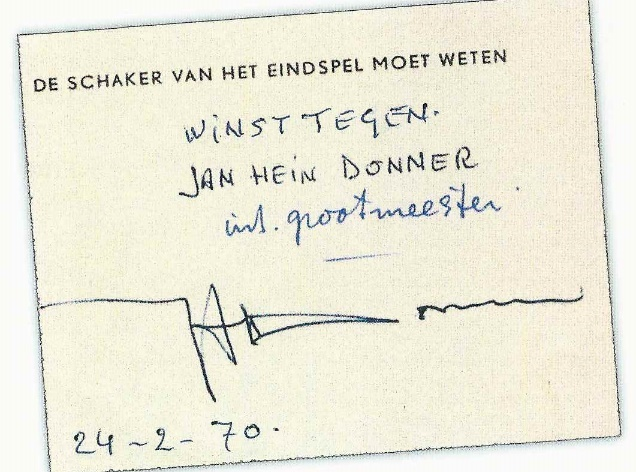 DE SCHAKER VAN HET EINDSPEL MOET WETEN
WINST TEGEN.
JAN HEIN DONNER
int. grootmeester.
24-2-70.